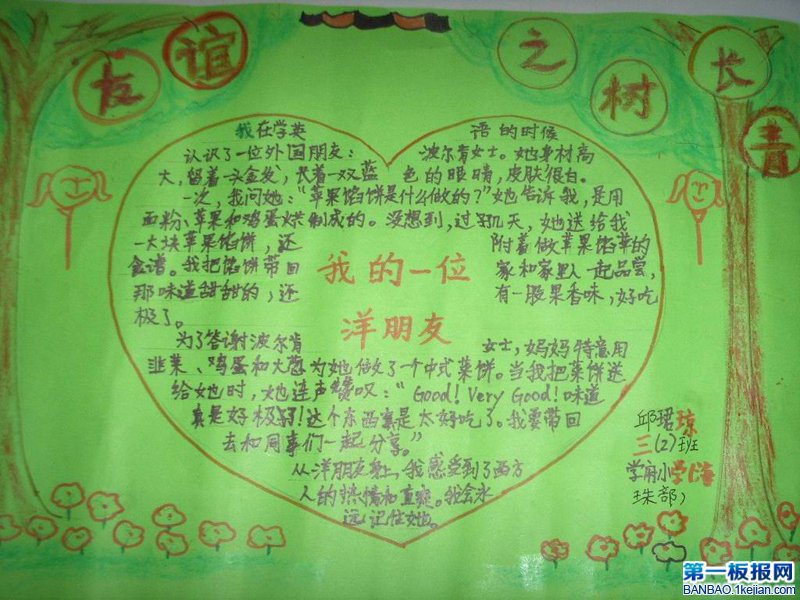 友谊之树长青
我在学英语的时候
认识了一位外国朋友：波尔肯女士。她身材高
大，留着一头金发，长着一双蓝色的眼睛，皮肤很白。
一次，我问她：“苹果馅饼是什么做的？”她告诉我，是用
面粉、苹果和鸡蛋烘制成的。没想到，过了几天，她送给我
一大块苹果馅饼，还附着做苹果馅苹的
食谱。我把馅饼带回家和家里人一起品尝，
那味道甜甜的，还有一股果香味，好吃
极了。
我的一位
洋朋友
为了答谢波尔肯女士，妈妈特意用
韭菜、鸡蛋和大葱为她做了一个中式菜饼。当我把菜饼送
给她时，她连声赞叹：“Good！Very Good！味道
真是好极了！这个东西真是太好吃了。我要带回
去和同事们一起分享。”
从洋朋友身上，我感受到了西方
人的热情和直爽。我会永
远记住她。
邱珺琼
三（2）班
学府小学
珠部）
第一板报网
BANBAO.1kejian.com